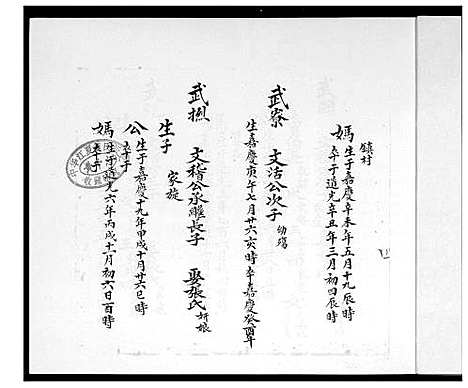 鎮村
媽生于嘉慶辛未年五月十九辰時
卒于道光辛丑年三月初四辰時
武寮 文活公次子 幼殤
生嘉慶庚午七月廿六亥時卒嘉慶癸酉年
武撫 文稽公承雎長子 娶張氏 妍娘
生子 家旋
公生于嘉慶十九年甲戌十月廿六巳時
卒于
媽生于道光六年丙戌十一月初六日酉時
卒于